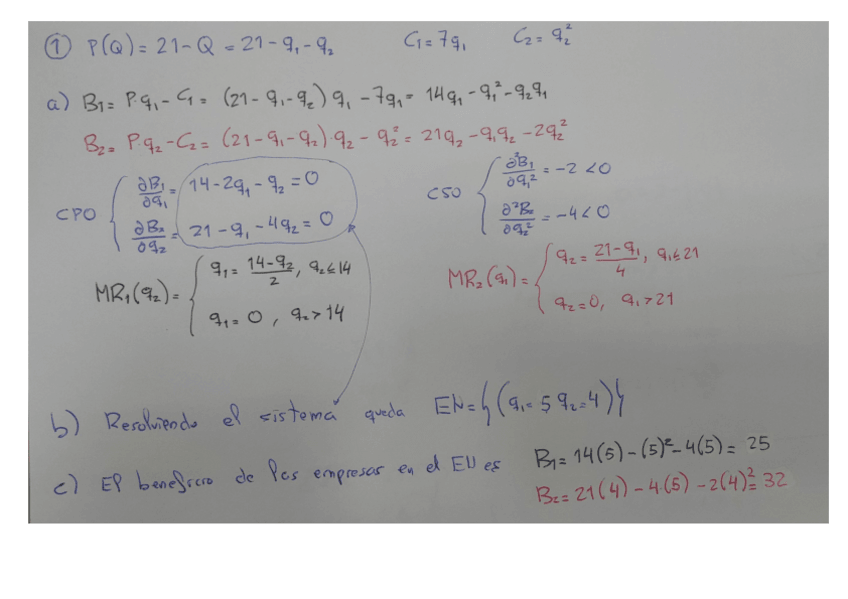 ① P(Q) = 21 - Q = 21 - q₁ - q₂   C₁ = 7q₁   C₂ = q₂²
a) B₁ = P·q₁ - C₁ = (21 - q₁ - q₂) q₁ - 7q₁ = 14q₁ - q₁² - q₂q₁
B₂ = P·q₂ - C₂ = (21 - q₁ - q₂)·q₂ - q₂² = 21q₂ - q₁q₂ - 2q₂²
CPO { ∂B₁/∂q₁ = 14 - 2q₁ - q₂ = 0   CSO { ∂²B₁/∂q₁² = -2 < 0
∂B₂/∂q₂ = 21 - q₁ - 4q₂ = 0   ∂²B₂/∂q₂² = -4 < 0
MR₁(q₂) = { q₁ = (14 - q₂)/2, q₂ ≤ 14   MR₂(q₁) = { q₂ = (21 - q₁)/4, q₁ ≤ 21
q₁ = 0, q₂ > 14   q₂ = 0, q₁ > 21
b) Resolviendo el sistema queda EN = {(q₁ = 5 q₂ = 4)}
c) El beneficio de las empresas en el EN es B₁ = 14(5) - (5)² - 4(5) = 25
B₂ = 21(4) - 4(5) - 2(4)² = 32